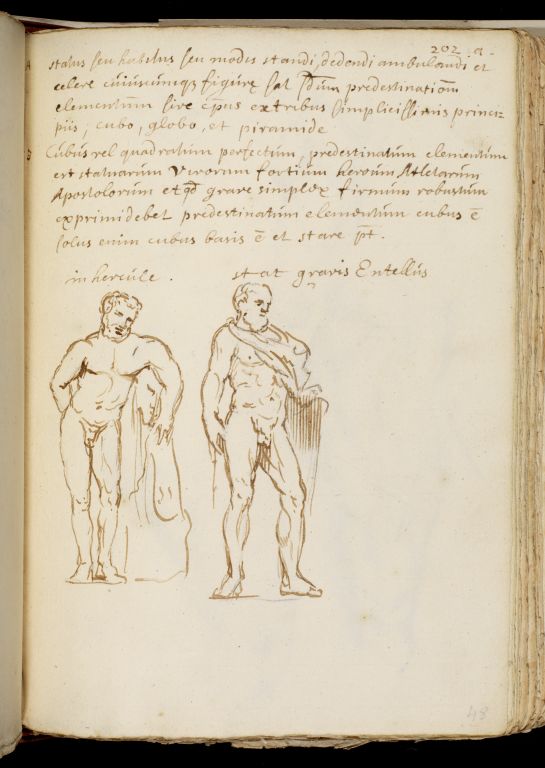 202 a.
A
status seu habitus seu modus standi, sedendi ambulandi et
celere cuiuscumq; figurę sat predestinationi
elementum sive c̄pus ex tribus simplicissimis princi-
piis, cubo, globo, et piramide
B
Cubus vel quadratum perfectum, predestinatum elementum
est statuarum Virorum fortium heroum Athletarum
Apostolorum et qd̄ grave simplex firmum robustum
exprimi debet predestinatum elementum cubus ē
solus enim cubus basis ē et stare pt̄.
in hercule. stat gravis Entellus
48